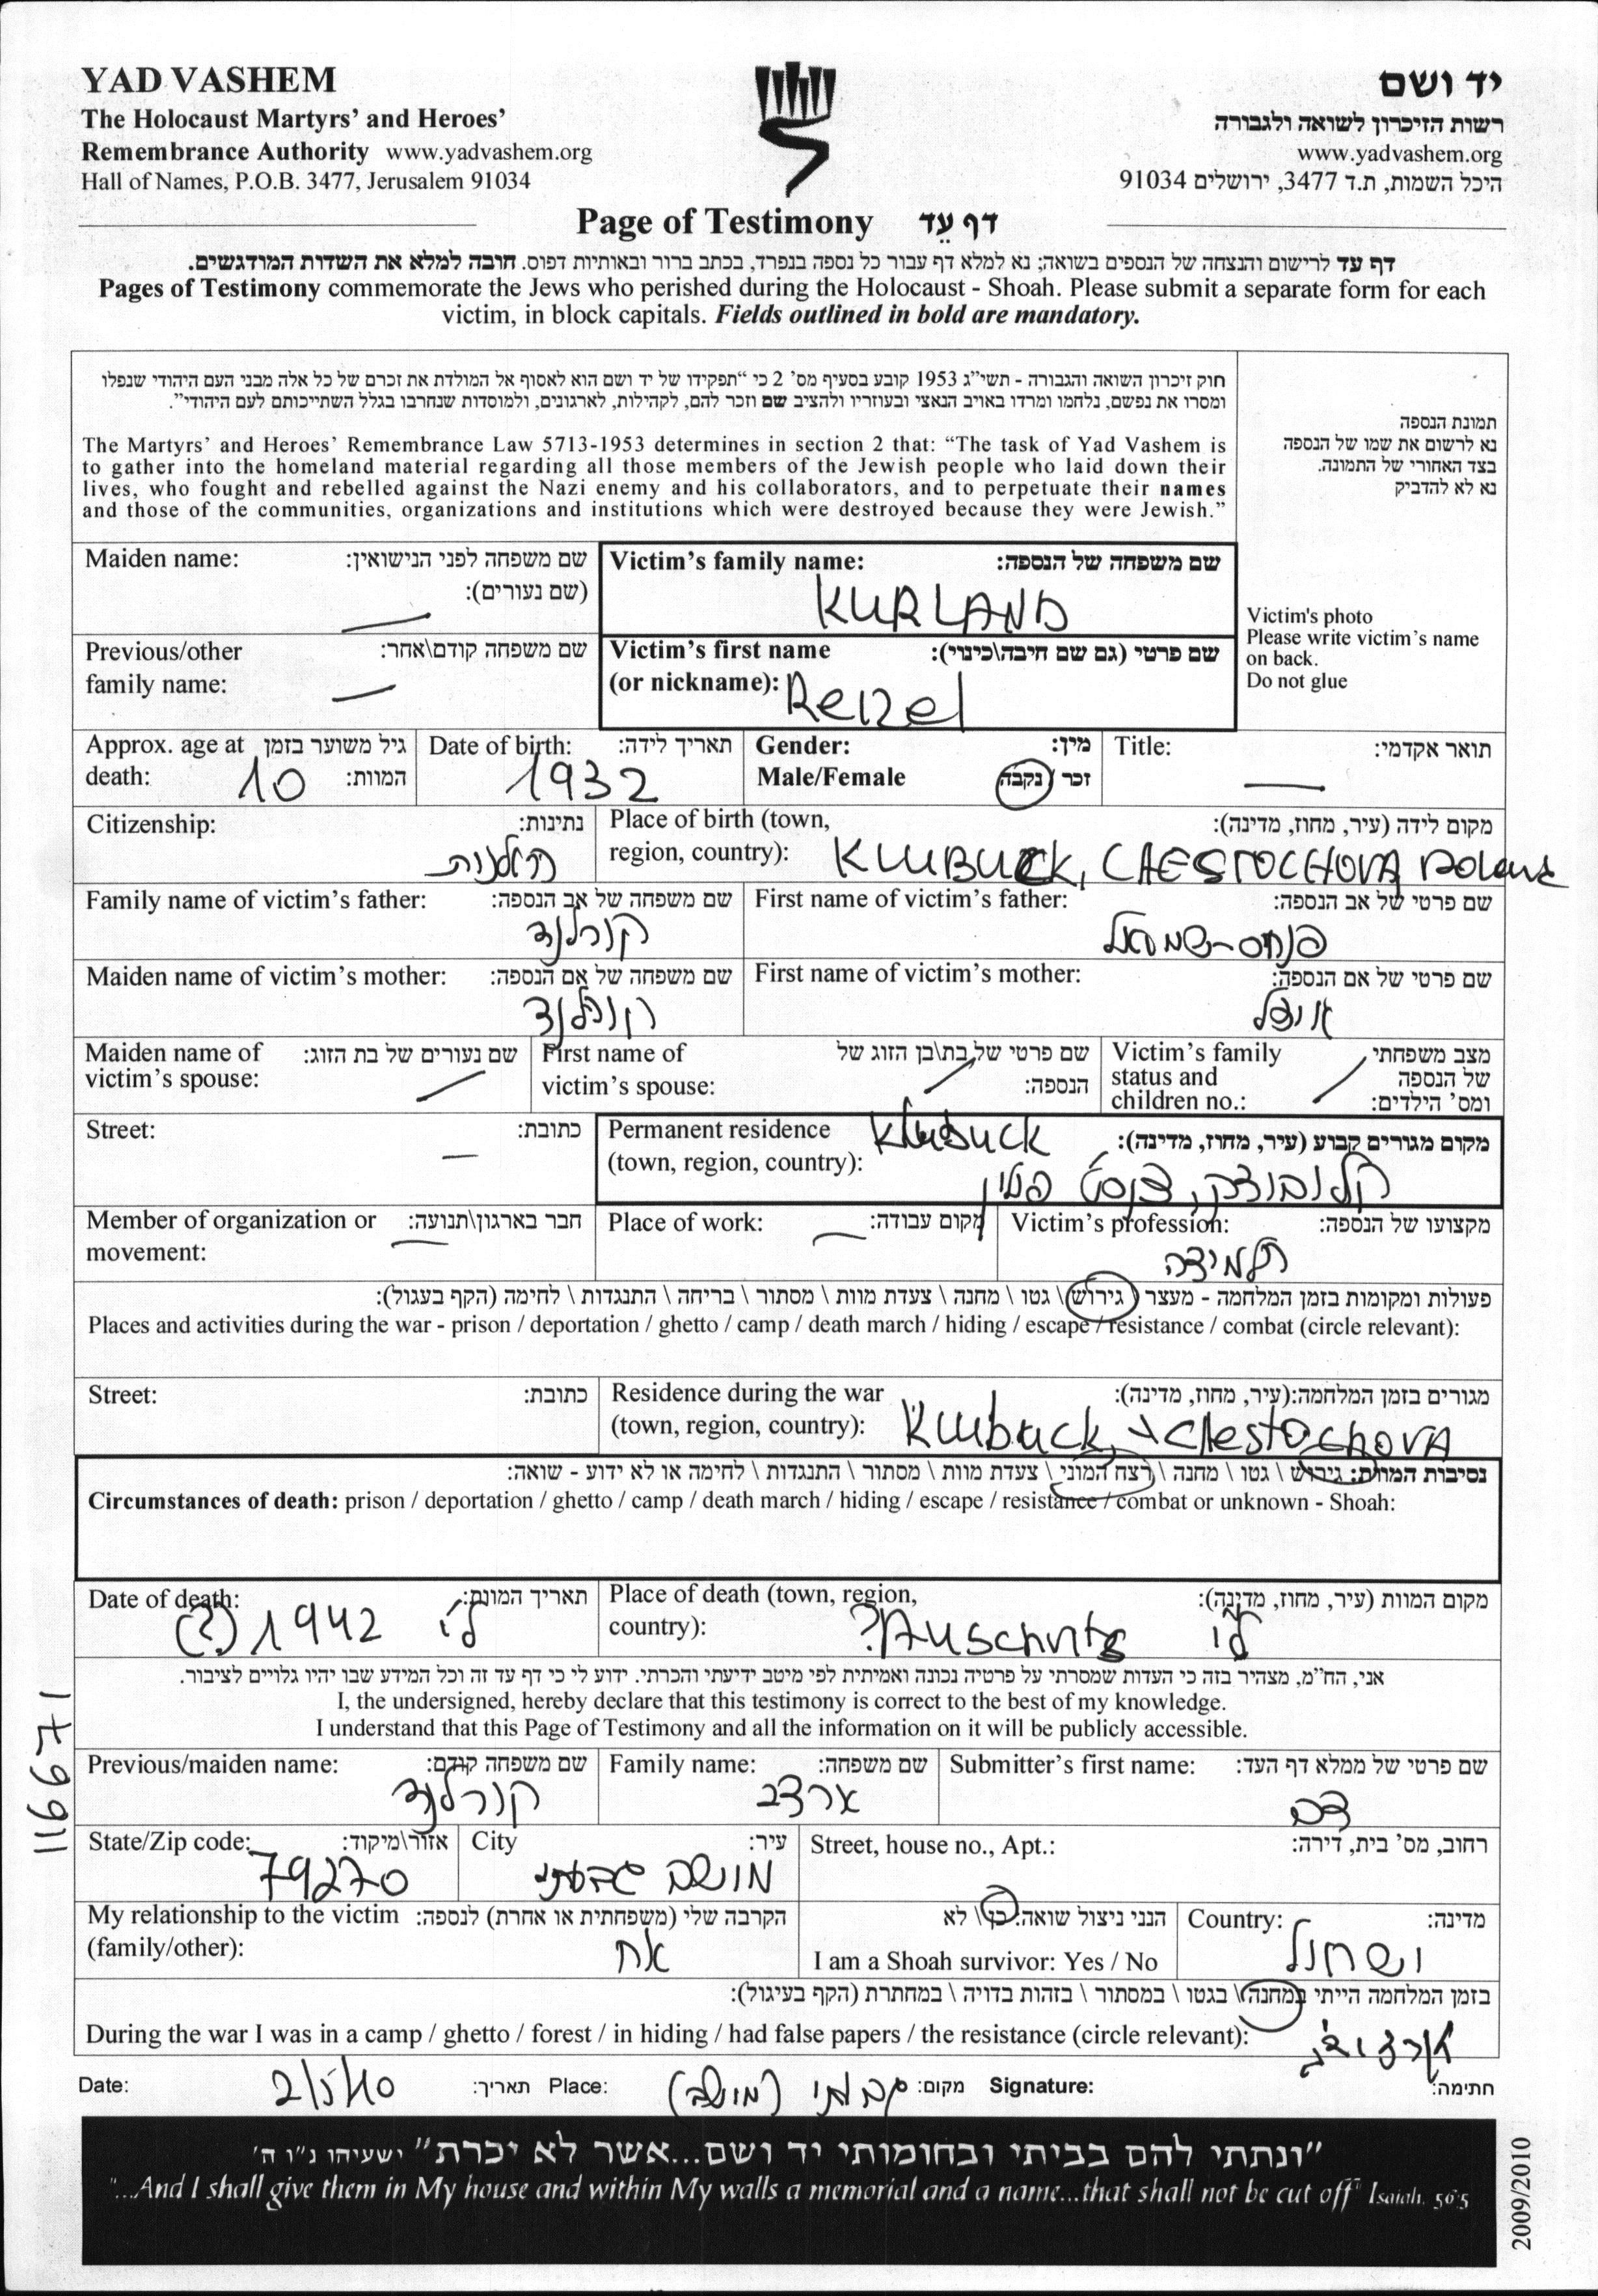 YAD VASHEM
The Holocaust Martyrs' and Heroes'
Remembrance Authority www.yadvashem.org
Hall of Names, P.O.B. 3477, Jerusalem 91034
יד ושם
רשות הזיכרון לשואה ולגבורה
www.yadvashem.org
היכל השמות, ת.ד 3477, ירושלים 91034
Page of Testimony דף עֵד
דף עד לרישום והנצחה של הנספים בשואה; נא למלא דף עבור כל נספה בנפרד, בכתב ברור ובאותיות דפוס. חובה למלא את השדות המודגשים.
Pages of Testimony commemorate the Jews who perished during the Holocaust - Shoah. Please submit a separate form for each
victim, in block capitals. Fields outlined in bold are mandatory.
חוק זיכרון השואה והגבורה - תשי"ג 1953 קובע בסעיף מס' 2 כי "תפקידו של יד ושם הוא לאסוף אל המולדת את זכרם של כל אלה מבני העם היהודי שנפלו
ומסרו את נפשם, נלחמו ומרדו באויב הנאצי ובעוזריו ולהציב שם וזכר להם, לקהילות, לארגונים, ולמוסדות שנחרבו בגלל השתייכותם לעם היהודי".
The Martyrs' and Heroes' Remembrance Law 5713-1953 determines in section 2 that: "The task of Yad Vashem is
to gather into the homeland material regarding all those members of the Jewish people who laid down their
lives, who fought and rebelled against the Nazi enemy and his collaborators, and to perpetuate their names
and those of the communities, organizations and institutions which were destroyed because they were Jewish."
תמונת הנספה
נא לרשום את שמו של הנספה
בצד האחורי של התמונה.
נא לא להדביק
Victim's photo
Please write victim's name
on back.
Do not glue
Maiden name: שם משפחה לפני הנישואין:
(שם נעורים):
Victim's family name: שם משפחה של הנספה:
KURLAND
Previous/other שם משפחה קודם\אחר:
family name:
Victim's first name שם פרטי (גם שם חיבה\כינוי):
(or nickname): Reizel
Approx. age at גיל משוער בזמן
death: 10 המוות:
Date of birth: תאריך לידה:
1932
Gender: מין:
Male/Female זכר / נקבה
Title: תואר אקדמי:
Citizenship: נתינות:
פולנית
Place of birth (town, מקום לידה (עיר, מחוז, מדינה):
region, country): KLUBUCK, CHESTOCHOVA Poland
Family name of victim's father: שם משפחה של אב הנספה:
קורלנד
First name of victim's father: שם פרטי של אב הנספה:
פנחס-שמואל
Maiden name of victim's mother: שם משפחה של אם הנספה:
קורלנד
First name of victim's mother: שם פרטי של אם הנספה:
Maiden name of שם נעורים של בת הזוג:
victim's spouse:
First name of שם פרטי של בת\בן הזוג של
victim's spouse: הנספה:
Victim's family מצב משפחתי
status and של הנספה
children no.: ומס' הילדים:
Street: כתובת:
Permanent residence Klubuck מקום מגורים קבוע (עיר, מחוז, מדינה):
(town, region, country):
קלובוצק, פולין
Member of organization or חבר בארגון\תנועה:
movement:
Place of work: מקום עבודה:
Victim's profession: מקצועו של הנספה:
תלמידה
פעולות ומקומות בזמן המלחמה - מעצר \ גירוש \ גטו \ מחנה \ צעדת מוות \ מסתור \ בריחה \ התנגדות \ לחימה (הקף בעגול):
Places and activities during the war - prison / deportation / ghetto / camp / death march / hiding / escape / resistance / combat (circle relevant):
Street: כתובת:
Residence during the war מגורים בזמן המלחמה:(עיר, מחוז, מדינה):
(town, region, country): Klubuck, Chestochova
נסיבות המוות: גירוש \ גטו \ מחנה \ רצח המוני \ צעדת מוות \ מסתור \ התנגדות \ לחימה או לא ידוע - שואה:
Circumstances of death: prison / deportation / ghetto / camp / death march / hiding / escape / resistance / combat or unknown - Shoah:
Date of death: תאריך המוות:
(?) 1942 לי
Place of death (town, region, מקום המוות (עיר, מחוז, מדינה):
country): ?Auschwitz לי
אני, הח"מ, מצהיר בזה כי העדות שמסרתי על פרטיה נכונה ואמיתית לפי מיטב ידיעתי והכרתי. ידוע לי כי דף עד זה וכל המידע שבו יהיו גלויים לציבור.
I, the undersigned, hereby declare that this testimony is correct to the best of my knowledge.
I understand that this Page of Testimony and all the information on it will be publicly accessible.
116671
Previous/maiden name: שם משפחה קודם:
קורלנד
Family name: שם משפחה:
ארצב
Submitter's first name: שם פרטי של ממלא דף העד:
State/Zip code: אזור\מיקוד:
79270
City עיר:
מושב
Street, house no., Apt.: רחוב, מס' בית, דירה:
My relationship to the victim הקרבה שלי (משפחתית או אחרת) לנספה:
(family/other): אח
הנני ניצול שואה: כן \ לא
I am a Shoah survivor: Yes / No
Country: מדינה:
ישראל
בזמן המלחמה הייתי במחנה \ בגטו \ במסתור \ בזהות בדויה \ במחתרת (הקף בעיגול):
During the war I was in a camp / ghetto / forest / in hiding / had false papers / the resistance (circle relevant):
Date: 2/5/10 תאריך: Place: (מושב) מקום: Signature: חתימה:
"ונתתי להם בביתי ובחומותי יד ושם...אשר לא יכרת" ישעיהו נ"ו ה'
"...And I shall give them in My house and within My walls a memorial and a name...that shall not be cut off" Isaiah. 56:5
2009/2010